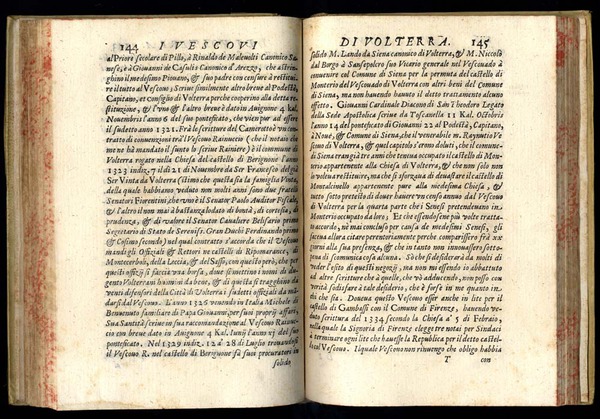 144 I VESCOVI
al Priore secolare di Pilli, à Rinaldo de Maleuolti Canonico Sa-
nese, e à Giouanni de Casulis Canonico d'Arezzo, che astrin-
ghino il medesimo Piouano, & suo padre con censure à restitui-
re il tutto al Vescouo; Scriue similmente altro breue al Podestà,
Capitano, et Consiglio di Volterra perche cooperino alla detta re-
stitutione, & l'vno & l'altro breue è dato in Auignone 4 kal.
Nouembris l'anno 6 del suo pontificato, che vien pur ad essere
il sudetto anno 1321. Frà le scritture del Camerotto è vn con-
tratto di conuentioni trà'l Vescouo Rainuccio (che il notaio che
me ne hà mandato il sunto lo scriue Rainiere) & il commune di
Volterra rogato nella Chiesa del castello di Berignone l'anno
1323 indiz. 7 il dì 21 di Nouembre da Ser Francesco del già
Ser Vinta da Volterra (stimo che questa sia la famiglia Vinta,
della quale habbiamo veduto non molti anni sono due fratelli
Senatori Fiorentini, che vno è il Senator Paolo Auditor Fiscale,
& l'altro il non mai à bastanza lodato di bontà, di cortesia, di
prudenza, & di valore il Senator Caualiere Belisario primo
Segretario di Stato de Sereniss. Gran Duchi Ferdinando primo
& Cosimo secondo) nel qual contratto s'accorda che il Vescouo
mandi gli Offiziali & Rettori ne castelli di Ripomarance, di
Montecerboli, della Leccia, & del Sasso, con questo però, che per
questi offizij si faccia vna borsa, doue si mettino i nomi di du-
gento Volterrani huomini da bene, & di questa si tragghino da
venti difensori della Città di Volterra i sudetti offiziali da man-
darsi dal Vescouo. L'anno 1325 venendo in Italia Michele di
Beneuento familiare di Papa Giouanni, per suoi proprij affari,
Sua Santità scriue in sua raccomandazione al Vescouo Rainuc-
cio con breue dato in Auignone 4 Kal. Iunij l'anno xj del suo
pontificato. Nel 1329 indiz. 12 a' 28 di Luglio trouandosi
il Vescouo R. nel castello di Berignone fà suoi procuratori in
solido
DI VOLTERRA. 145
solido M. Lando da Siena canonico di Volterra, & M. Niccolò
dal Borgo à Sansepolcro suo Vicario generale nel Vescouado à
conuenire col Comune di Siena per la permuta del castello di
Monterio del Vescouado di Volterra con altri beni del comune
di Siena, ma non hauendo hauuto il detto trattamento alcuno
effetto. Giouanni Cardinale Diacono di San Theodoro Legato
della Sede Apostolica scriue da Toscanella 11 Kal. Octobris
l'anno 14 del pontificato di Giouanni 22 al Podestà, Capitano,
à Noue, & Comune di Siena, che il venerabile m. Raynutio Ve-
scouo di Volterra, & quel capitolo s'erono doluti, che il comune
di Siena trangià tre anni che teneua occupato il castello di Mon-
terio appartenente alla Chiesa di Volterra, & che non solo non
lo voleua restituire, ma che si sforzaua di deuastare il castello di
Montalcinello appartenente pure alla medesima Chiesa, & il
tutto sotto pretesto di douer hauere vn censo annuo dal Vescouo
di Volterra per la quarta parte che i Senesi pretendeuano in
Monterio occupato da loro; Et che essendosene più volte tratta-
to accordo, nè mai concluso per causa de medesimi Senesi, gli
faceua allora citare perentoriamente perche comparissero frà xx
giorni alla sua presenza, & che in tanto non innouassero sotto pe-
na di scomunica cosa alcuna. Sò che si desidererà da molti di
veder l'esito di questi negozij, ma non mi essendo io abbattuto
ad altre scritture che à quelle, che vò adducendo, non posso con
verità sodisfare à tale desiderio, che è forse in me quanto in
chi che sia. Doueua questo Vescouo esser anche in lite per il
castello di Gambassi con il Comune di Firenze, hauendo
veduto scrittura del 1334 secondo la Chiesa a' 5 di Febraio,
nella quale la Signoria di Firenze elegge tre notai per Sindaci
a terminare ogni lite che hauesse la Republica per il detto castel-
lo col Vescouo. Il quale Vescouo non rinuengo che obligo habbia
T con